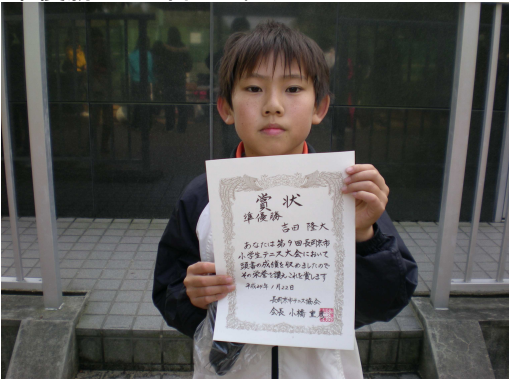 賞状
準優勝
吉田 隆大
あなたは第9回長岡京市
小学生テニス大会において
頭書の成績を収めましたので
その栄誉を讃えこれを賞します
長岡京市テニス協会
会長 小橋